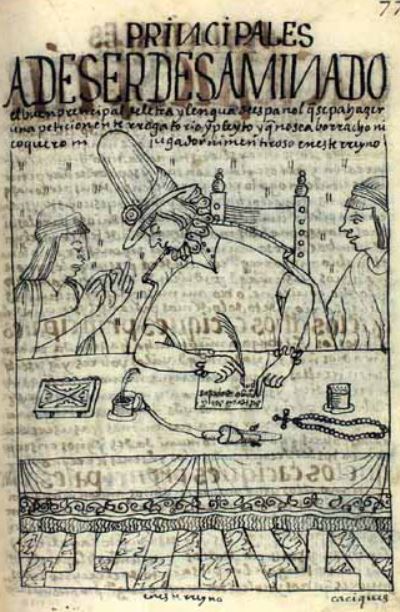 77
PRINCIPALES
A DE SER DESAMINADO
el buen prencipal de letra y lengua de español q̃ sepa hazer
una peticion enterrogatorio y pleyto y q̃ no sea borracho ni
coquero ni jugador ni mentiroso en este rreyno
en este rreyno
caciques